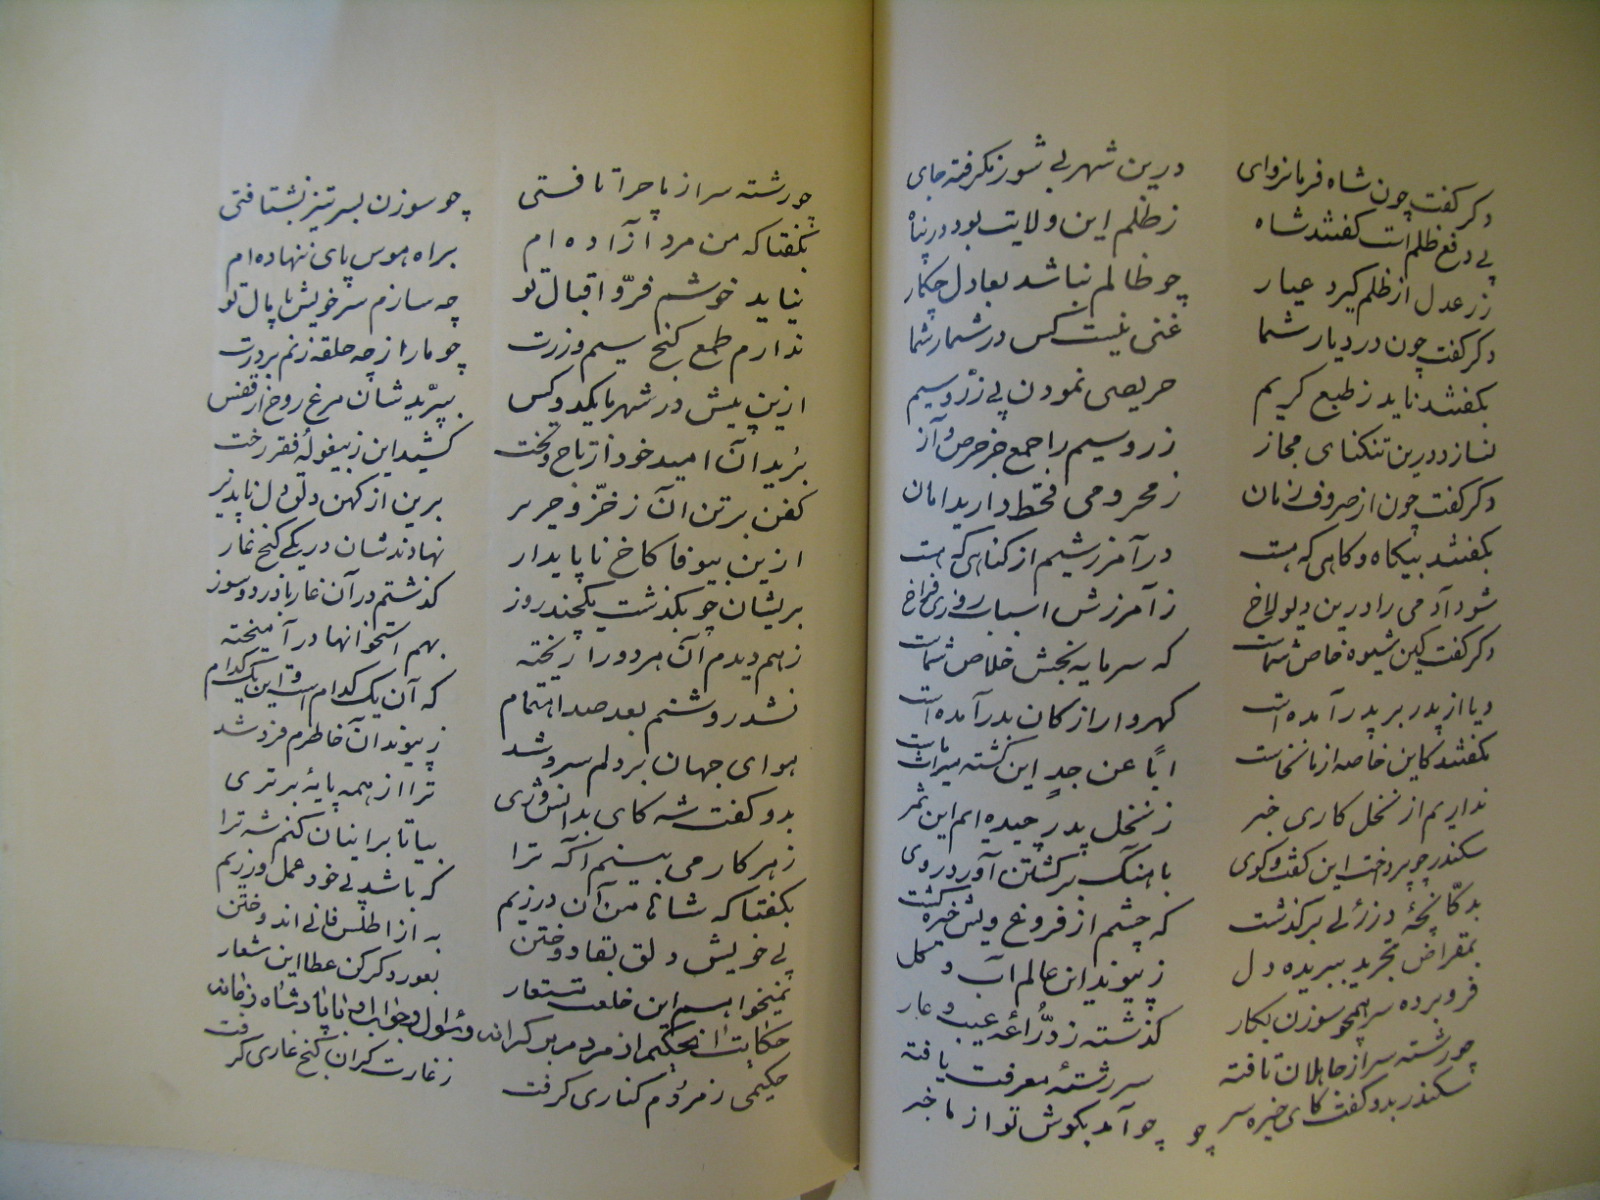 دکر کفت چون شاه فرمانروای درین شهر بی شور نکرفته جای
پی دفع ظلم است کفتند شاه ز ظلم این ولایت بود در پناه
زر عدل از ظلم کیرد عیار چو ظالم نباشد بعادل چکار
دکر کفت چون در دیار شما غنی نیست کس در شمار شما
بکفتند ناید ز طبع کریم حریصی نمودن پی زرّ و سیم
نسازد درین تنکنای مجاز زر و سیم را جمع جز حرص و آز
دکر کفت چون از صروف زمان ز محرومی قحط دارید امان
بکفتند بیکاه و کاهی که هست در آمرزشیم از کناهی که هست
شود آدمی را درین دیولاخ ز آمرزش اسباب روزی فراخ
دکر کفت کین شیوه خاص شماست که سرمایه بخش خلاص شماست
و یا از پدر بر پدر آمده است کهروار از کان بدر آمده است
بکفتند کاین خاصه از ما نخاست اباً عن جدٍ این کشته میراث ماست
نداریم از نخل کاری خبر ز نخل پدر چیده ایم این ثمر
سکندر چو پرداخت این کفت و کوی باهنک برکشتن آورد روی
بدکانچهٔ درزئی برکذشت که چشم از فروغ ویش خیره کشت
بمقراض تجرید ببریده دل ز پیوند این عالم آب و کل
فرو برده سر همچو سوزن بکار کذشته ز درّاعهٔ عیب و عار
چو رشته سر از جاهلان تافته سر رشتهٔ معرفت یافته
سکندر بدو کفت کای خیره سر چو آمد بکوش تو از ما خبر
چو
چو رشته سر از ما چرا تافتی چو سوزن بسر تیز نشتافتی
بکفتا که من مرد آزاده ام براه هوس پای ننهاده ام
نیاید خوشم فرّ و اقبال تو چه سازم سر خویش پامال تو
ندارم طمع کنج سیم و زرت چو مار از چه حلقه زنم بر درت
ازین پیش در شهر ما یکدو کس بپرّید شان مرغ روح از قفس
برید آن امید خود از تاج و تخت کشید این ز بیغولهٔ فقر رخت
کفن بر تن آن ز خزّ و حریر برین از کهن دلق دل ناپذیر
ازین بیوفا کاخ ناپایدار نهادند شان در یکی کنج غار
بریشان چو بکذشت یکچند روز کذشتم در آن غار با درد و سوز
ز هم دیدم آن هر دو را ریخته بهم استخوانها در آمیخته
نشد روشنم بعد صد اهتمام که آن یک کدام است و این یک کدام
هوای جهان بر دلم سرد شد ز پیوند آن خاطرم فرد شد
بدو کفت شه کای بدانشوری ترا از همه پایهٔ برتری
ز هر کار می بینم آکه ترا بیا تا بر اینان کنم شه ترا
بکفتا که شاها من آن درزیم که باشد پی خود عمل ورزیم
پی خویش دلق بقا دوختن به از اطلس فانی اندوختن
نمیخواهم این خلعت مستعار بعور دکر کن عطا این شعار
حکایت آن حکیم از مردم بر کرانه و سؤال و جواب او با پادشاه زمانه
حکیمی ز مردم کناری کرفت ز غارت کران کنج غاری کرفت